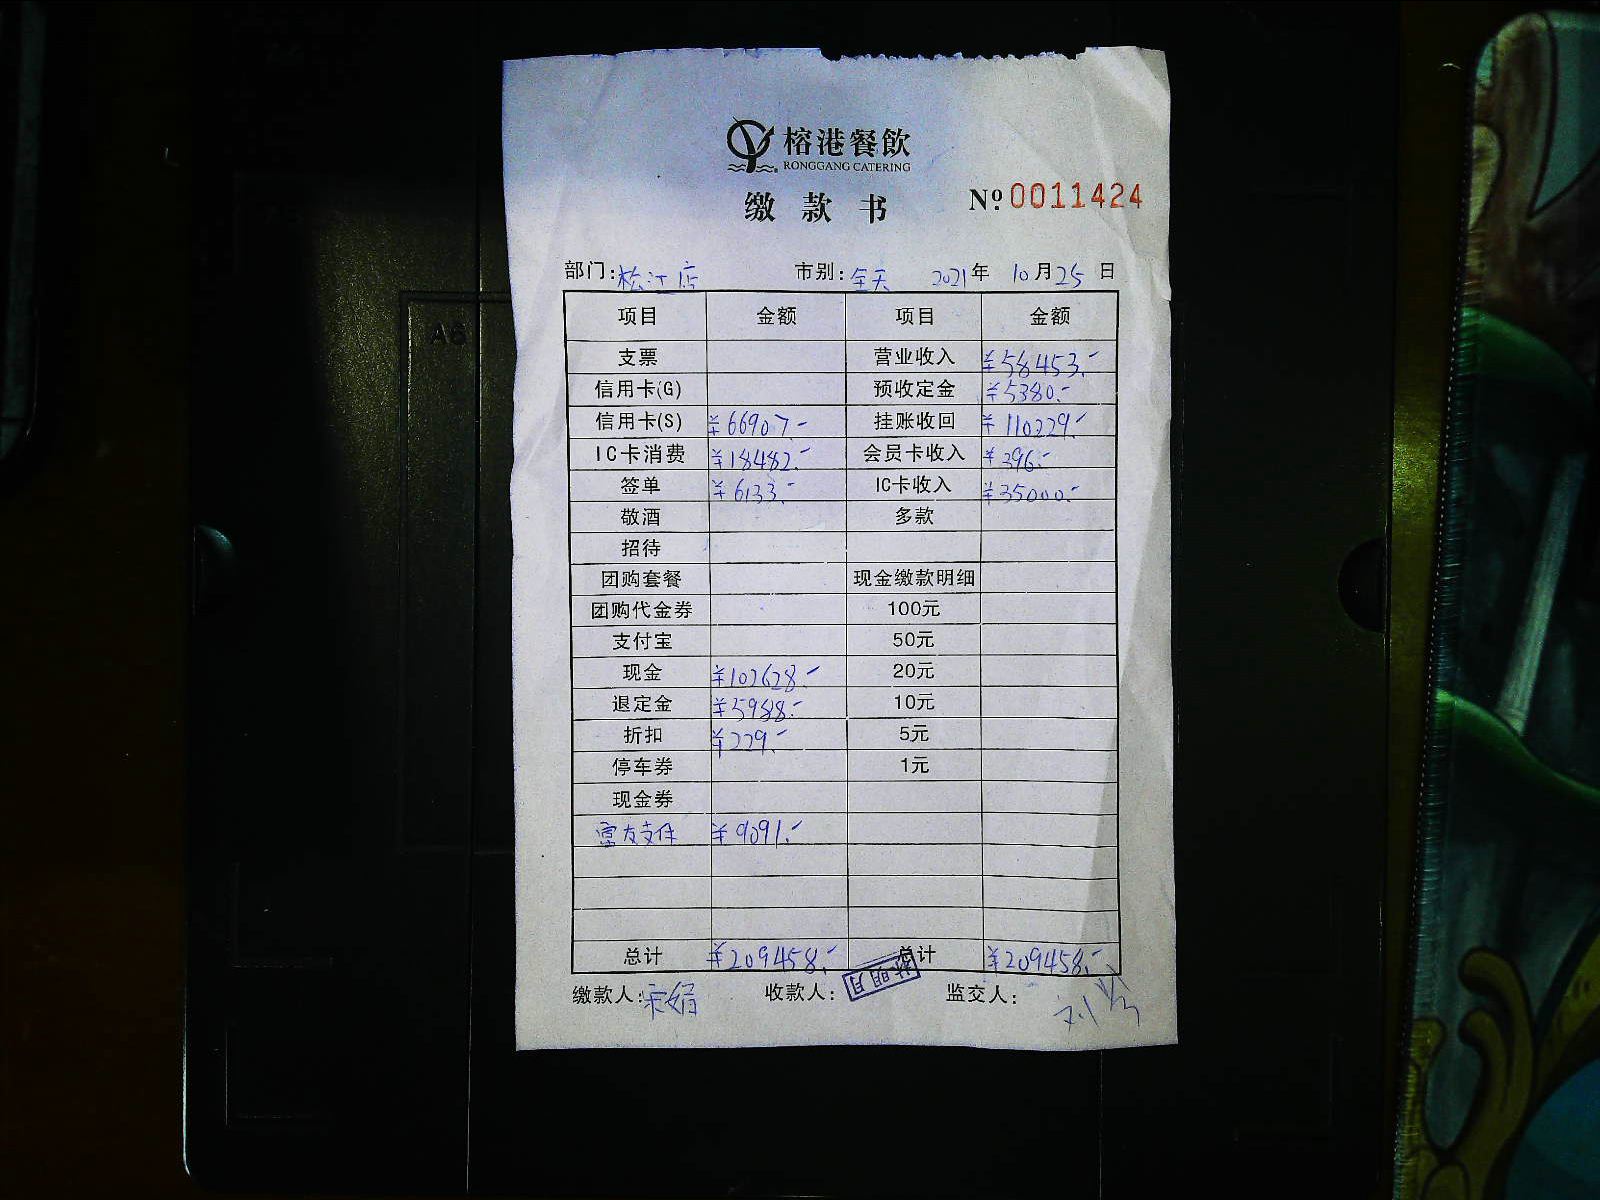 榕港餐飲
RONGGANG CATERING
缴款书 Nº.0011424
部门:松江店 市别:全天 2021年10月25日
项目 金额 项目 金额
支票 营业收入 ¥58453.-
信用卡(G) 预收定金 ¥5380.-
信用卡(S) ¥66907.- 挂账收回 ¥110229.-
IC卡消费 ¥18482.- 会员卡收入 ¥396.-
签单 ¥6133.- IC卡收入 ¥35000.-
敬酒 多款
招待
团购套餐 现金缴款明细
团购代金券 100元
支付宝 50元
现金 ¥102628.- 20元
退定金 ¥5988.- 10元
折扣 ¥229.- 5元
停车券 1元
现金券
富友支付 ¥9091.-
总计 ¥209458.- 总计 ¥209458.-
缴款人:宋娟 收款人: 明月 监交人:刘
A6